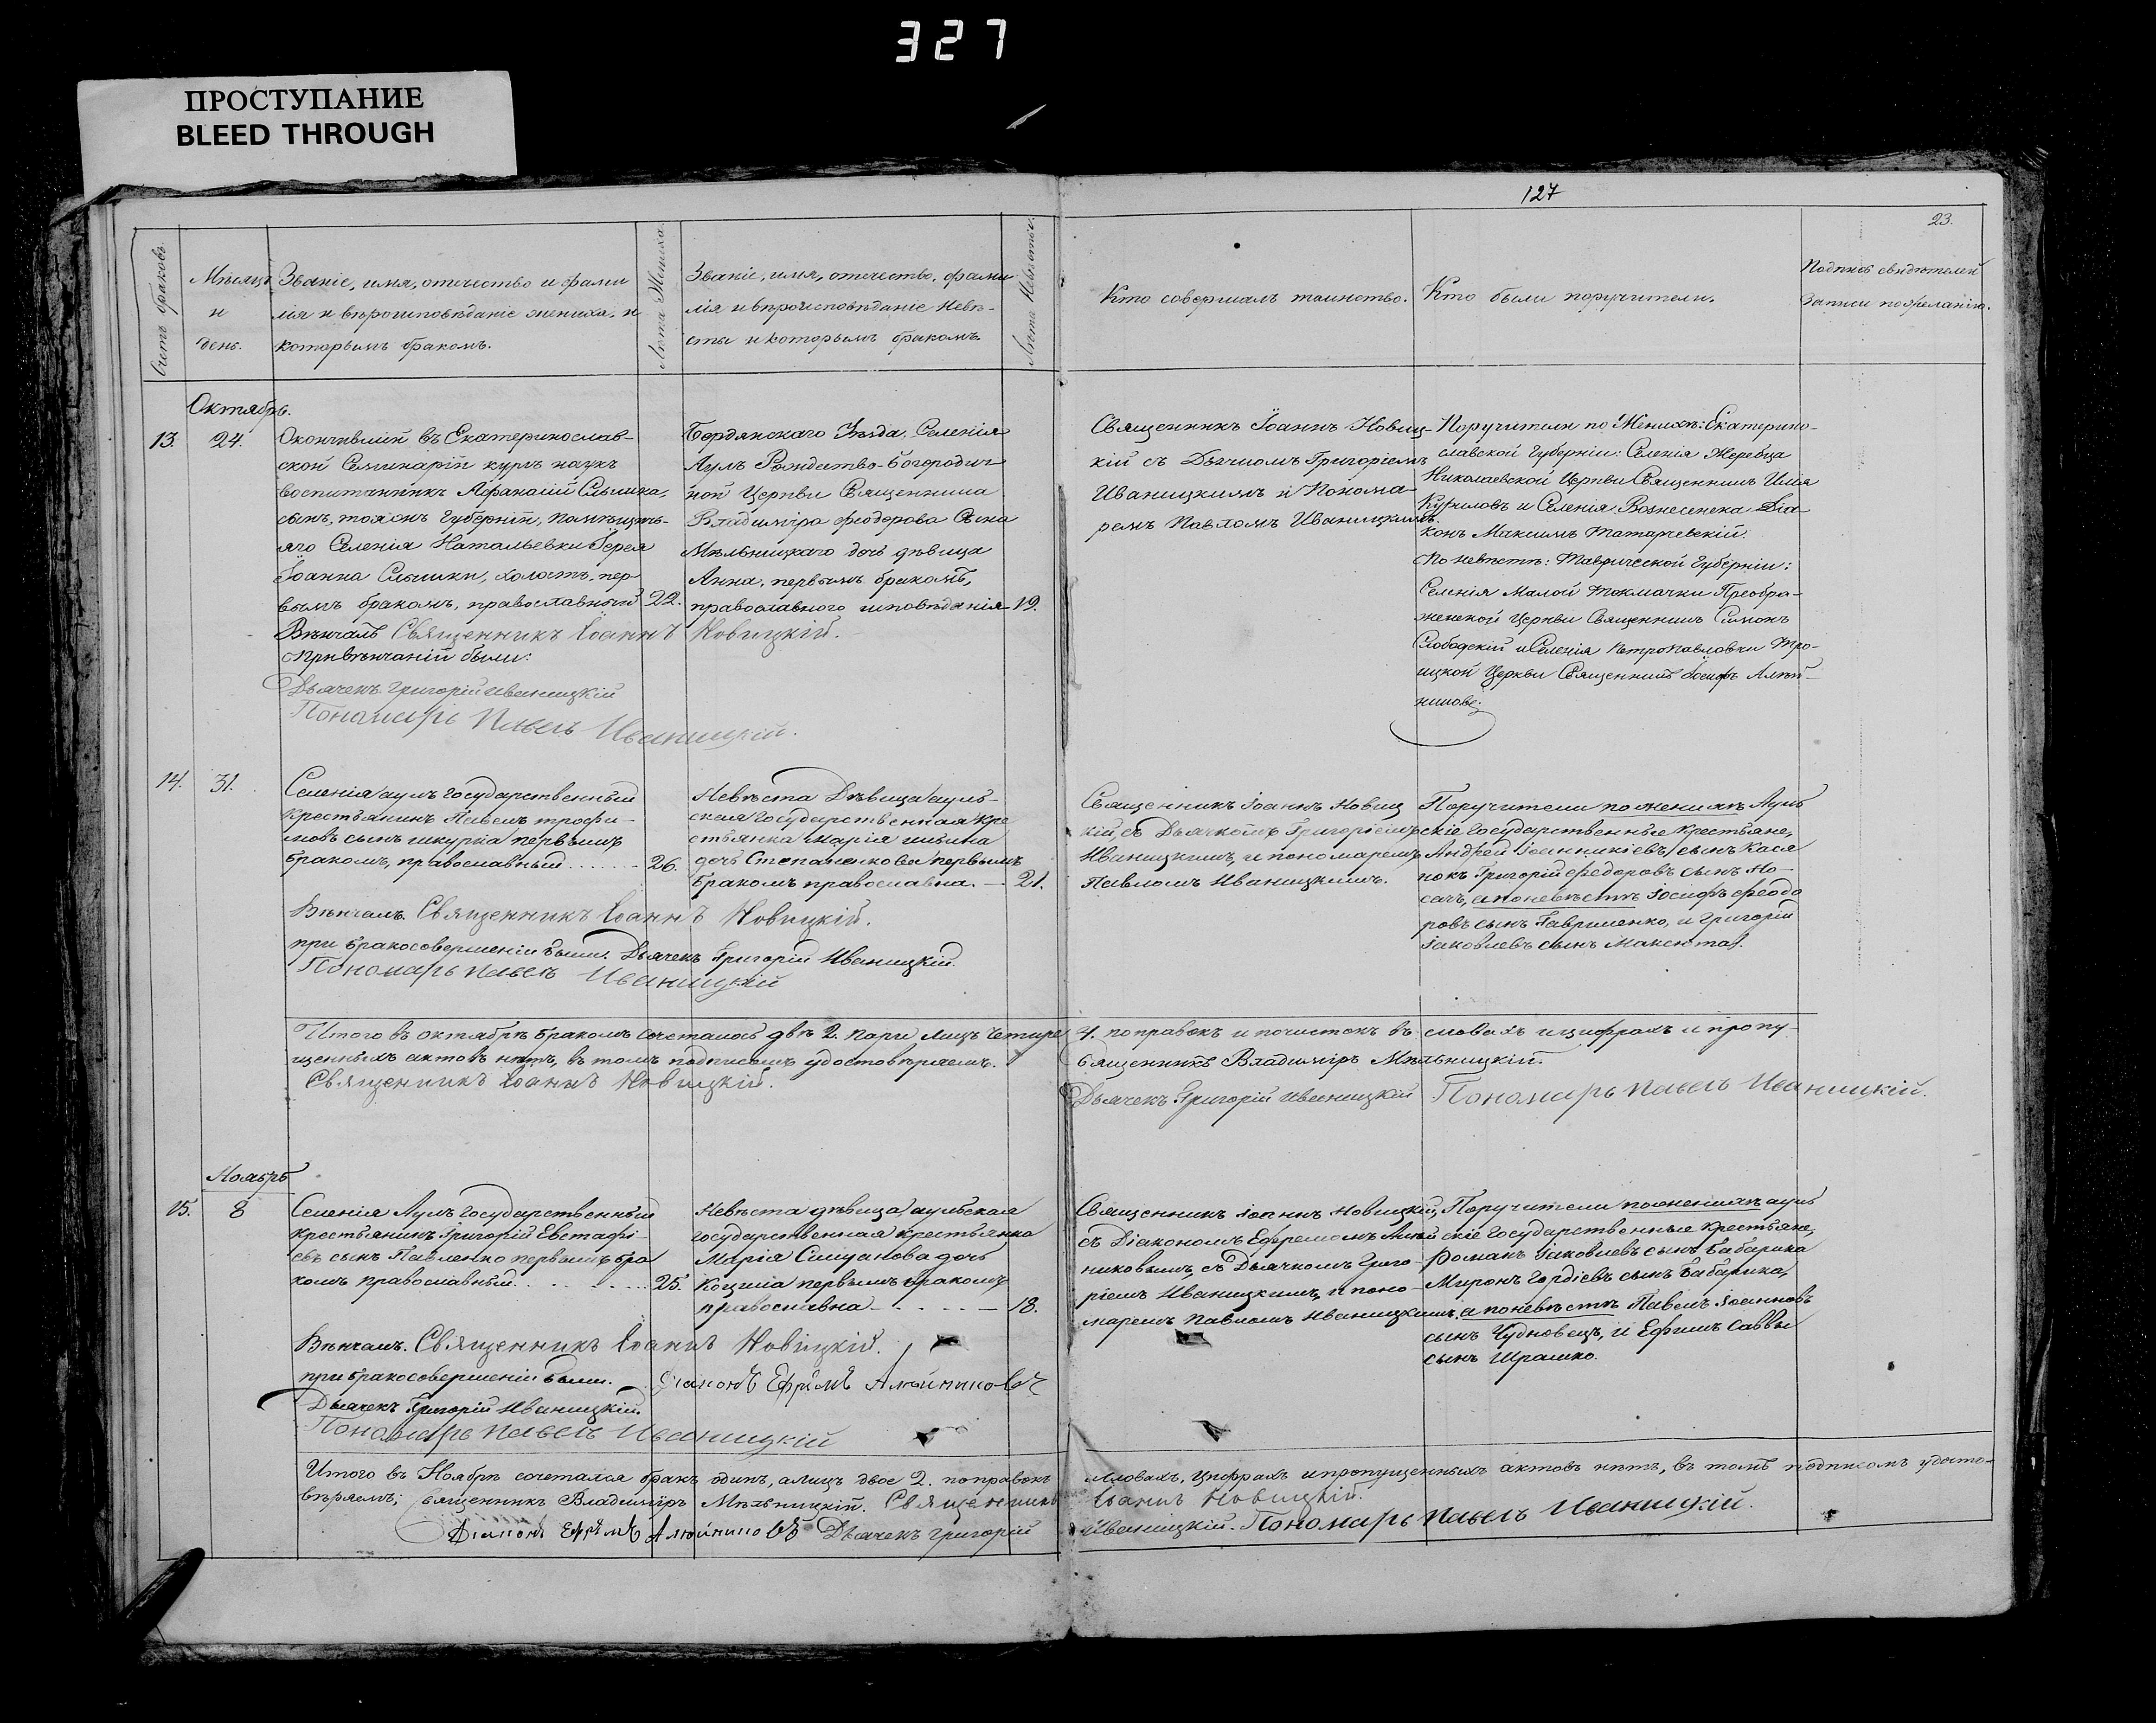 327
ПРОСТУПАНИЕ
BLEED THROUGH
127
23.
Счетъ браковъ.
Мѣсяцъ
и
день.
Званіе, имя, отечество и фами
лія и вѣроисповѣданіе жениха, и
которымъ бракомъ.
Лѣта Жениха.
Званіе, имя, отечество, фами
лія и вѣроисповѣданіе Невѣ-
сты и которымъ бракомъ.
Лѣта Невѣсты.
Кто совершалъ таинство.
Кто были поручители.
Подпись свидѣтелей
записи по желанію.
Октябрь.
13.
24.
Окончившій въ Екатеринослав-
ской Семинаріи курсъ наукъ
воспитанникъ Афанасій
сынъ, тояжъ Губерніи, помѣщичь-
яго Селенія Натальевки Іерея
Іоанна холостъ, пер
вымъ бракомъ, православный
22.
Бердянскаго Уѣзда, Селенія
Аулъ Рождество-Богородич
ной Церкви Священника
Владиміра Феодорова Сына
Мѣльницкаго дочь дѣвица
Анна, первымъ бракомъ,
православнаго исповѣданія
19.
Вѣнчалъ Священникъ Іоаннъ Новицкій.
При вѣнчаніи были:
Дьячекъ Григорій Иваницкій
Пономарь Павелъ Иваницкій.
Священникъ Іоаннъ Новиц-
кій съ Дьячкомъ Григоріемъ
Иваницкимъ и Понома-
ремъ Павломъ Иваницкимъ.
Поручители по Женихѣ: Екатерино-
славской Губерніи: Селенія Жеребца
Николаевской Церкви Священникъ Илія
и Селенія Вознесенска Діа
конъ Максимъ Татарчевскій.
По невѣстѣ: Таврической Губерніи:
Селенія Малой Токмачки Преобра-
женской Церкви Священникъ Симонъ
Слободскій и Селенія Петропавловки Тро-
ицкой Церкви Священникъ Іосифъ Алей-
никовъ.
14.
31.
Селенія аулъ государственный
крестьянинъ Павелъ трофи-
мовъ сынъ шкурка первымъ
бракомъ, православный . . . . . .
26.
Невѣста Дѣвица ауль-
ская государственная кре
стьянка Марія
дочь Степаненкова первымъ
бракомъ православна. —
21.
Вѣнчалъ Священникъ Іоаннъ Новицкій.
при бракосовершеніи были: Дьячекъ Григорій Иваницкій.
Пономарь Павелъ Иваницкій
Священникъ Іоаннъ Новиц
кій, съ Дьячкомъ Григоріемъ
Иваницкимъ, и пономаремъ
Павломъ Иваницкимъ.
Поручители по женихѣ Ауль
скіе государственные крестьяне,
Андрей Іоанникіевъ сынъ Кася
нокъ Григорій Федоровъ сынъ Но-
сачъ, а по невѣстѣ Іосифъ феодо
ровъ сынъ Гавриленко, и Григорій
Іаковлевъ сынъ Максюта.
Итого въ октябрѣ бракомъ сочеталось двѣ 2. пары, лицъ четыре 4. поправокъ и почистокъ въ словахъ и цифрахъ и пропу-
щенныхъ актовъ нѣтъ, въ томъ подписомъ удостовѣряемъ. Священникъ Владиміръ Мѣльницкій.
Священникъ Іоаннъ Новицкій. Дьячекъ Григорій Иваницкій Пономарь Павелъ Иваницкій.
Ноябрь
15.
8
Селенія Аулъ государственный
крестьянинъ Григорій Евстафі-
евъ сынъ Павленко первымъ бра
комъ православный . . . . . . . .
25.
Невѣста дѣвица аульская
государственная крестьянка
Марія дочь
первымъ бракомъ
православна — . . . . —
18.
Вѣнчалъ. Священникъ Іоаннъ Новицкій.
при бракосовершеніи были. Діаконъ Ефремъ Алейниковъ
Дьячекъ Григорій Иваницкій.
Пономарь Павелъ Иваницкій
Священникъ Іоаннъ Новицкій,
съ Діакономъ Ефремомъ Алей
никовымъ, съ Дьячкомъ Григо-
ріемъ Иваницкимъ, и поно-
маремъ Павломъ Иваницкимъ.
Поручители по женихѣ ауль
скіе государственные крестьяне,
Романъ Іаковлевъ сынъ Бабарика
Миронъ Гордіевъ сынъ Бабарика,
а по невѣстѣ Павелъ Іоанновъ
сынъ Чудновецъ, и Ефимъ Саввы
сынъ Шрамко.
Итого въ Ноябрѣ сочетался бракъ одинъ, а лицъ двое 2. поправокъ словахъ, цифрахъ и пропущенныхъ актовъ нѣтъ, въ томъ подписомъ удосто-
вѣряемъ; Священникъ Владиміръ Мѣльницкій. Священникъ Іоаннъ Новицкій.
Діаконъ Ефремъ Алейниковъ Дьячекъ Григорій Иваницкій. Пономарь Павелъ Иваницкій.